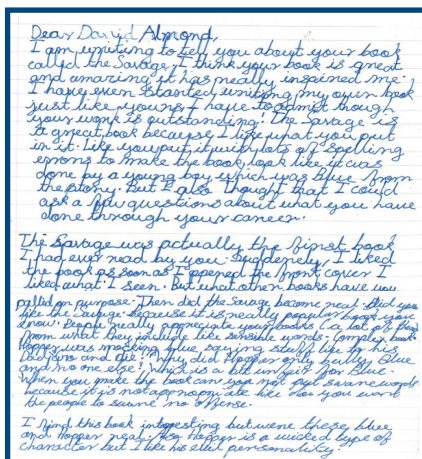 Dear David Almond,
I am writing to tell you about your book
called the Savage. I think your book is great
and amazing it has really inspired me.
I have even started writing my own book
just like yours. I have to admit though
your work is outstanding! The Savage is
a great book because I like what you put
in it. Like you put it with lots of spelling
errors to make the book look like it was
done by a young boy which was Blue from
the story. But I also thought that I could
ask a few questions about what you have
done through your career.
The Savage was actually the first book
I had ever read by you. Suddenely, I liked
the book as soon as I opened the front cover I
liked what I seen. But what other books have you
on purpose. Then did the Savage become real. Did you
like the Savage because it is really popular book you
know. People really appreciate your books (a lot of them)
from what they include like sensible words. Complex book
Hopper was mocking blue saing stuff like to his
Dad and die. Why did Hopper only bully Blue
and no one else? Which is a bit unfair for Blue.
When you make the book can you not put sware words
because it is not appropriate like do you want
the people to sware no offense.
I find this book intresting but were these blue
and Hopper real. Also Hopper is a wicked type of
character but I like his evil personality.